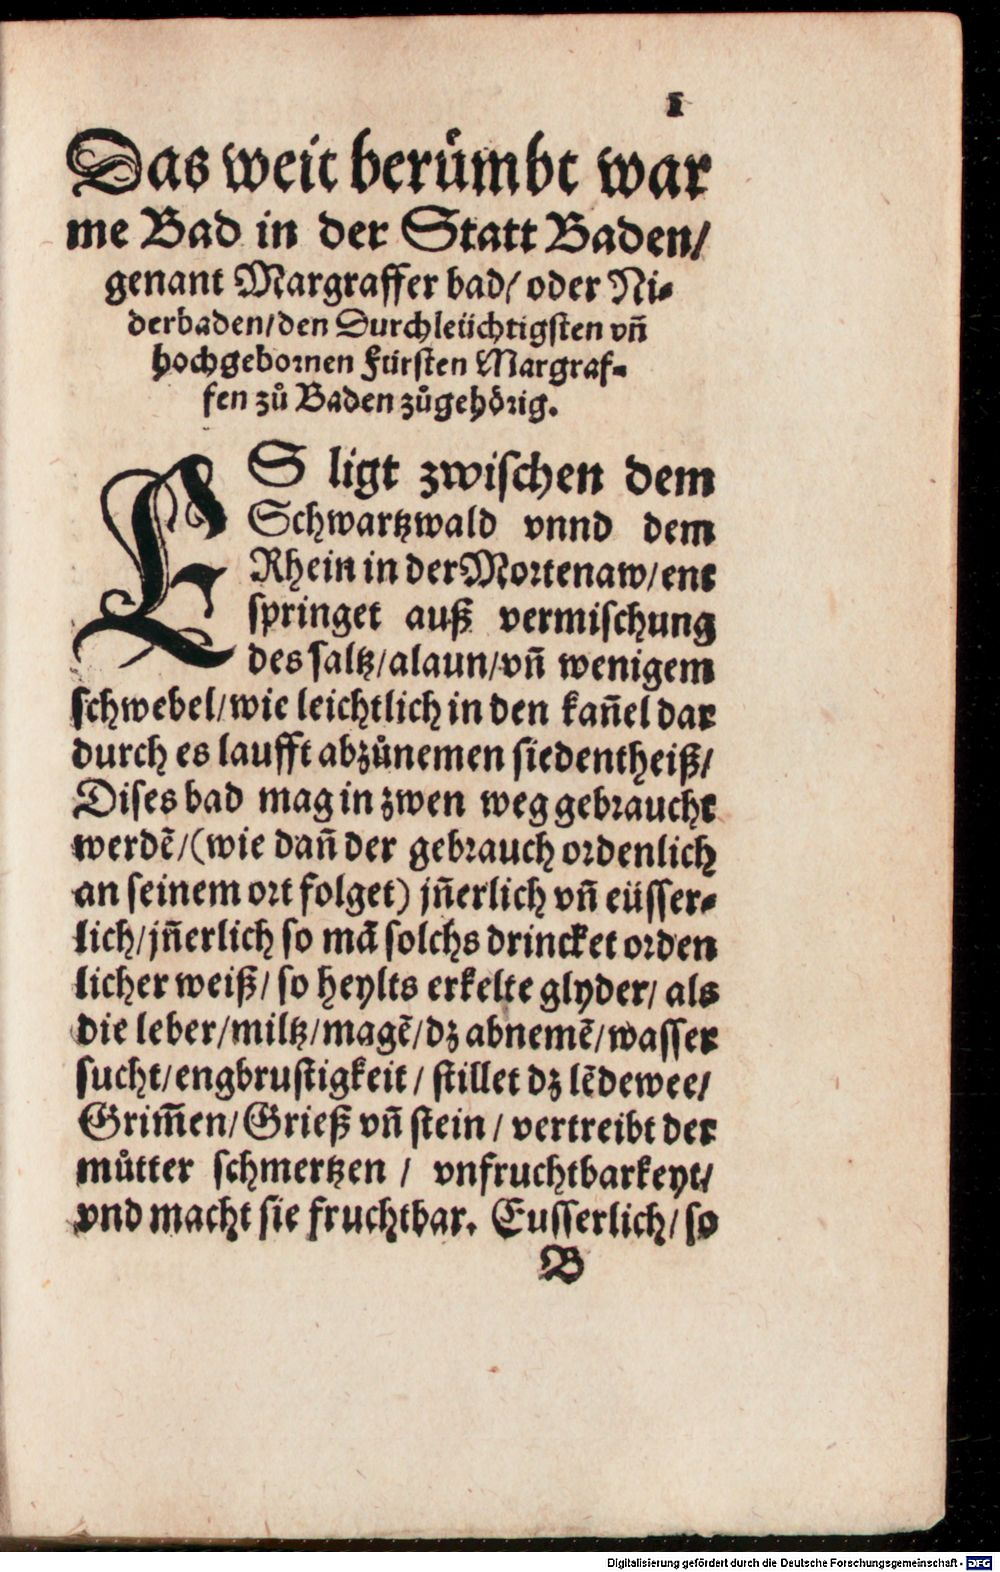 1
Das weit berůmbt war
me Bad in der Statt Baden/
genant Margraffer bad/ oder Ni-
derbaden/den Durchleüchtigsten vñ
hochgebornen Fürsten Margraf-
fen zů Baden zůgehörig.
ES ligt zwischen dem
Schwartzwald vnnd dem
Rhein in der Mortenaw/ ent
springet auß vermischung
des saltz/alaun/vñ wenigem
schwebel/wie leichtlich in den kañel dar
durch es laufft abzůnemen siedentheiß/
Dises bad mag in zwen weg gebraucht
werdẽ/(wie dañ der gebrauch ordenlich
an seinem ort folget) jñerlich vñ eüsser-
lich/jñerlich so mã solchs drincket orden
licher weiß/ so heylts erkelte glyder/ als
die leber/miltz/magẽ/dz abnemẽ/wasser
sucht/engbrustigkeit/ stillet dz lẽdewee/
Grim̃en/Grieß vñ stein/ vertreibt der
můtter schmertzen / vnfruchtbarkeyt/
vnd macht sie fruchtbar. Eusserlich/ so
B
Digitalisierung gefördert durch die Deutsche Forschungsgemeinschaft - DFG